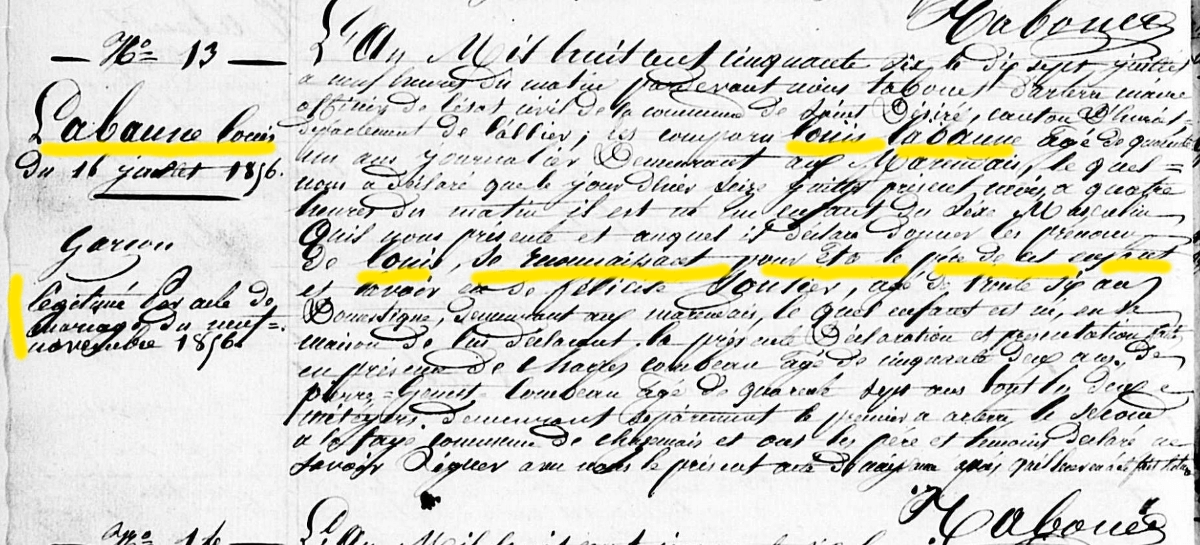 Tabouet
— N° 13 —
Labaune louis
Du 16 juillet 1856.
Garçon
légitimé Par acte de
mariage du neuf
novembre 1856.
L'An Mil huit cent cinquante six le dix sept juillet
a neuf heures du matin pardevant nous tabouet maire
officier de l'état civil de la commune de saint Désiré, canton D'huriel
département de l'allier; est comparu louis labaune agé de quarante
un ans journalier Demeurant aux le quel
nous a déclaré que le jour d'hier seize juillet présent mois, a quatre
heures du matin il est né un enfant du sexe Masculin
Qu'il nous présente et auquel il déclare donner les prénoms
de louis, se reconnaissant pour être le père de cet enfant
et avoir eu de félicité agé de trente six ans
Domestique, demeurant aux le quel enfant est né, en la
maison de lui déclarant. la présente Déclaration et présentation
en présence de combeau agé de cinquante deux ans. De
pierre combeau agé de quarante sept ans tout les deux
métayers. demeurant séparément le premier a le second
a la faye commune de chazemais et ont les père et témoins déclaré ne
savoir signer avec nous le présent acte de naissance après
Tabouet
L'An Mil huit cent cinquante